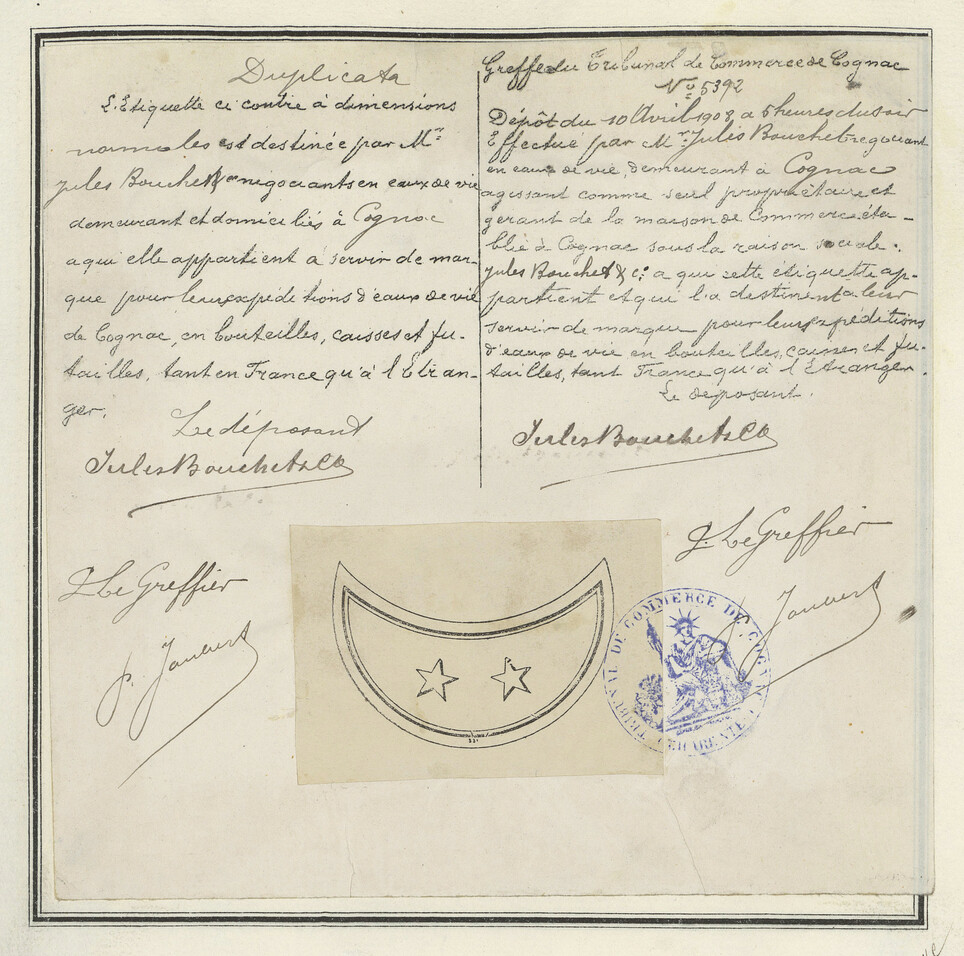 Duplicata
L'Etiquette ci contre à dimensions
normales est destinée par Mrs
Jules Bouchet & Cie négociants en eaux de vie
demeurant et domiciliés à Cognac
a qui elle appartient à servir de mar-
que pour leurs expéditions d'eaux de vie
de Cognac, en bouteilles, caisses et fu-
tailles, tant en France qu'à l'Etran-
ger.
Le déposant
Jules Bouchet & Co
Le Greffier
p. Joubert
Greffe du Tribunal de Commerce de Cognac
No 5392
Dépôt du 10 Avril 1908 a 5 heures du soir
Effectué par Mr. Jules Bouchet negociant
en eaux de vie, demeurant à Cognac
agissant comme seul propriétaire et
gérant de la maison de Commerce éta-
blie à Cognac sous la raison sociale.
Jules Bouchet & Cie a qui cette étiquette ap-
partient et qui l'a destinent a leur
servir de marque pour leurs expéditions
d'eaux de vie en bouteilles, caisses et fu-
tailles, tant France qu'à l'Etranger.
Le déposant.
Jules Bouchet & Co
Le Greffier
Joubert
TRIBUNAL DE COMMERCE DE COGNAC
CHARENTE